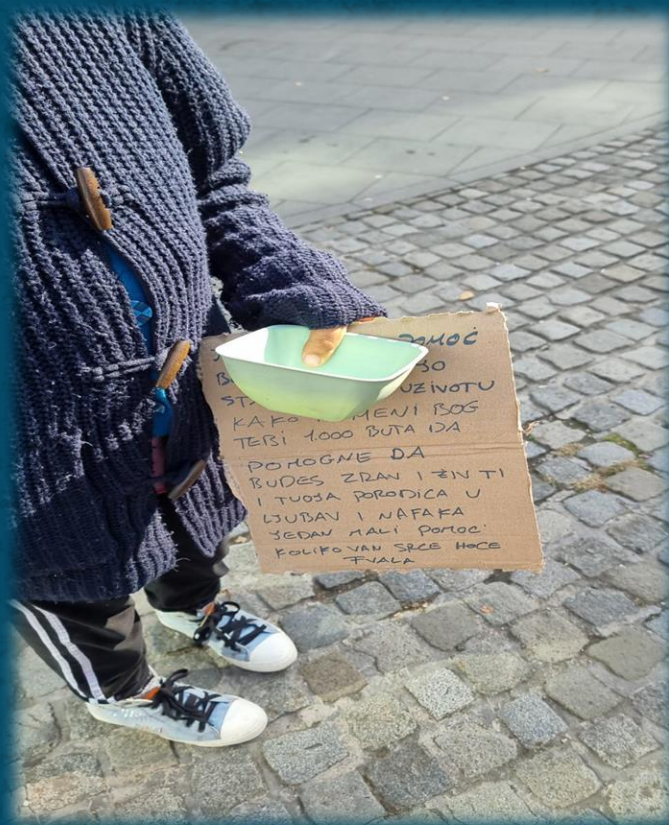 POMOĆ
UZIVOTU
KAKO MENI BOG
TEBI 1.000 BUTA DA
POMOGNE DA
BUDES ZDRAV I ŽIV TI
I TVOJA PORODICA U
LJUBAV I NAFAKA
JEDAN MALI POMOĆ
KOLIKO VAN SRCE HOCE
FVALA